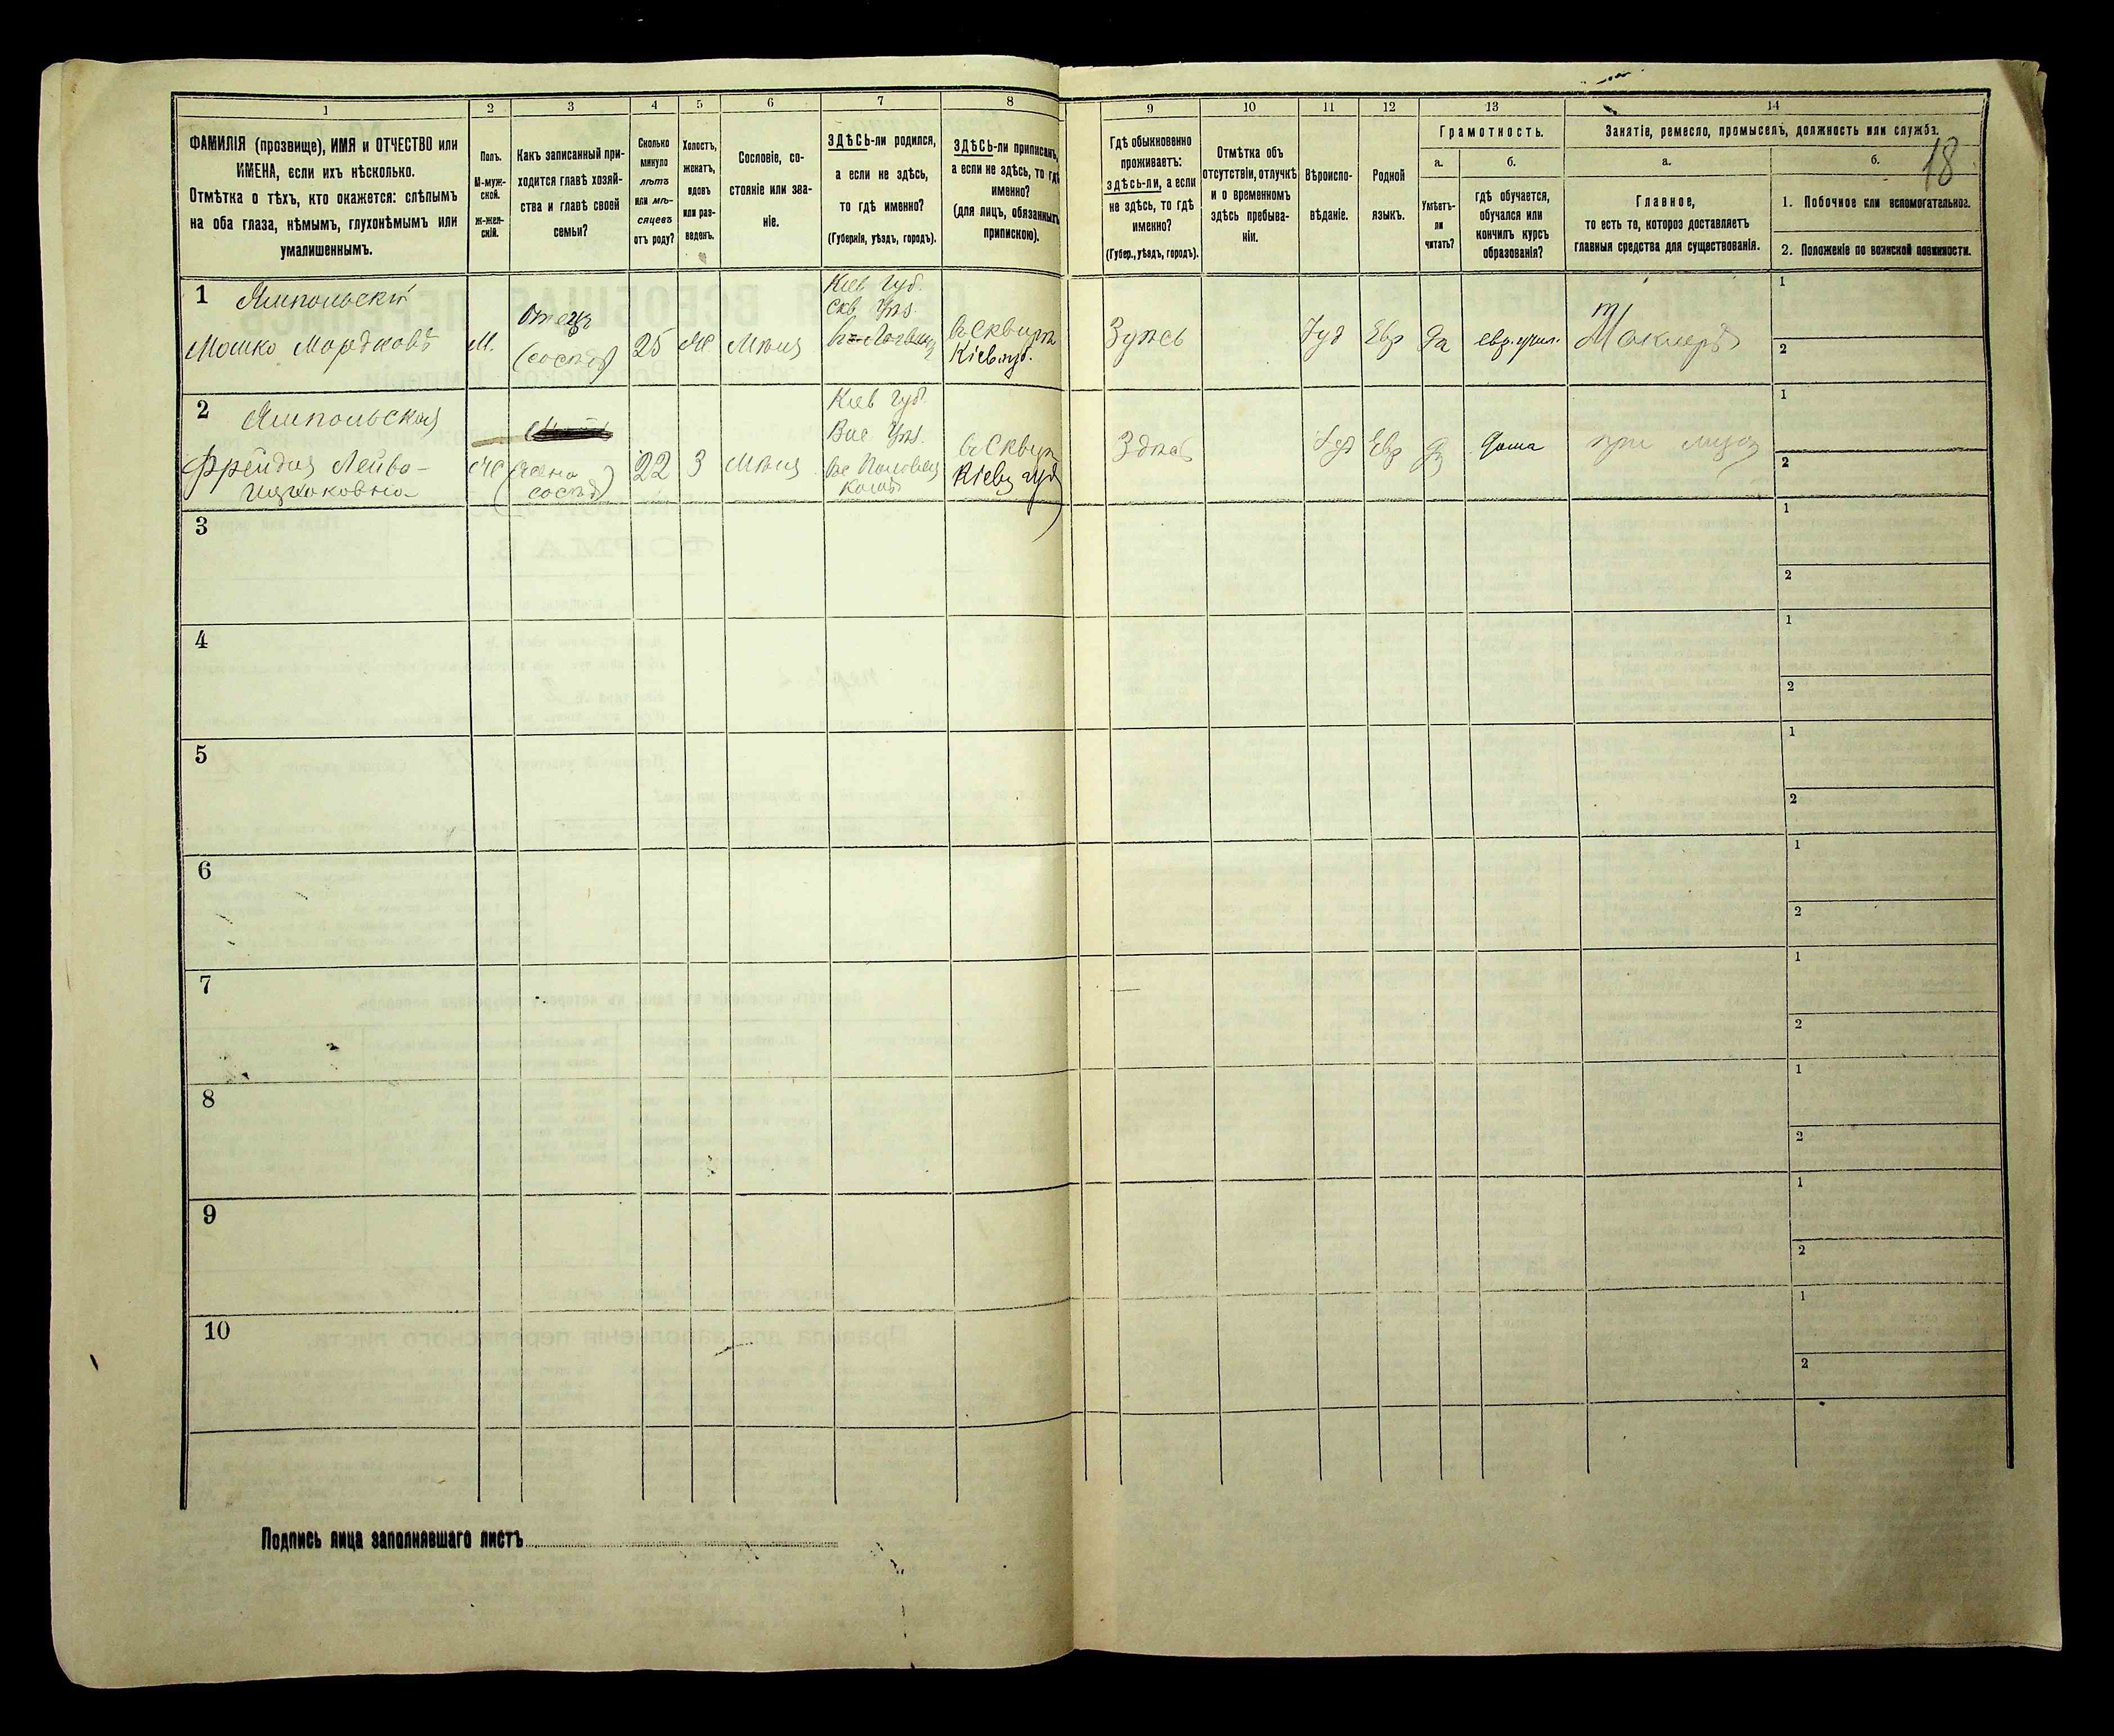 1
2
3
4
5
6
7
8
9
10
11
12
13
14
ФАМИЛІЯ (прозвище), ИМЯ и ОТЧЕСТВО или
ИМЕНА, если ихъ нѣсколько.
Отмѣтка о тѣхъ, кто окажется: слѣпымъ
на оба глаза, нѣмымъ, глухонѣмымъ или
умалишеннымъ.
Полъ.
М-муж-
ской.
ж-жен-
скій.
Какъ записанный при-
ходится главѣ хозяй-
ства и главѣ своей
семьи?
Сколько
минуло
лѣтъ
или мѣ-
сяцевъ
отъ роду?
Холостъ,
женатъ,
вдовъ
или раз-
веденъ.
Сословіе, со-
стояніе или зва-
ніе.
ЗДѢСЬ-ли родился,
а если не здѣсь,
то гдѣ именно?
(Губернія, уѣздъ, городъ).
ЗДѢСЬ-ли приписанъ,
а если не здѣсь, то гдѣ
именно?
(для лицъ, обязанныхъ
припискою).
Гдѣ обыкновенно
проживаетъ:
здѣсь-ли, а если
не здѣсь, то гдѣ
именно?
(Губер., уѣздъ, городъ).
Отмѣтка объ
отсутствіи, отлучкѣ
и о временномъ
здѣсь пребыва-
ніи.
Вѣроиспо-
вѣданіе.
Родной
языкъ.
Грамотность.
а.
Умѣетъ-
ли
читать?
б.
гдѣ обучается,
обучался или
кончилъ курсъ
образованія?
Занятіе, ремесло, промыселъ, должность или служба.
18
а.
Главное,
то есть то, которое доставляетъ
главныя средства для существованія.
б.
1. Побочное или вспомогательное.
2. Положеніе по воинской повинности.
1 Ямпольскій
Мошко Мордковъ
М.
Отецъ
25
Ж
Кіев Губ.
Скв Уѣз.
въ Сквирѣ
Кіев губ.
Здѣсь
Іуд
Евр
Да
евр. учил.
Маклеръ
1
2
2 Ямпольская
Фрейда Лейво-
Ж
22
З
Кіев Губ.
Вас Уѣз.
въ Сквирѣ
Кіев губ
Здѣсь
Іуд
Евр
Да
Дома
при мужѣ
1
2
3
1
2
4
1
2
5
1
2
6
1
2
7
1
2
8
1
2
9
1
2
10
1
2
Подпись лица заполнявшаго листъ